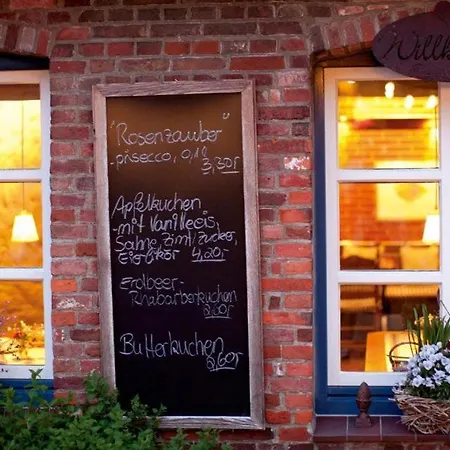 "Rosenzauber"
-prisecco, 0,1l
3,30€
Apfelkuchen
-mit Vanilleeis,
Sahne, Zimt/Zucker,
Eierlikör 4,20€
Erdbeer-
Rhabarberkuchen
2,60€
Butterkuchen
2,60€
Willk